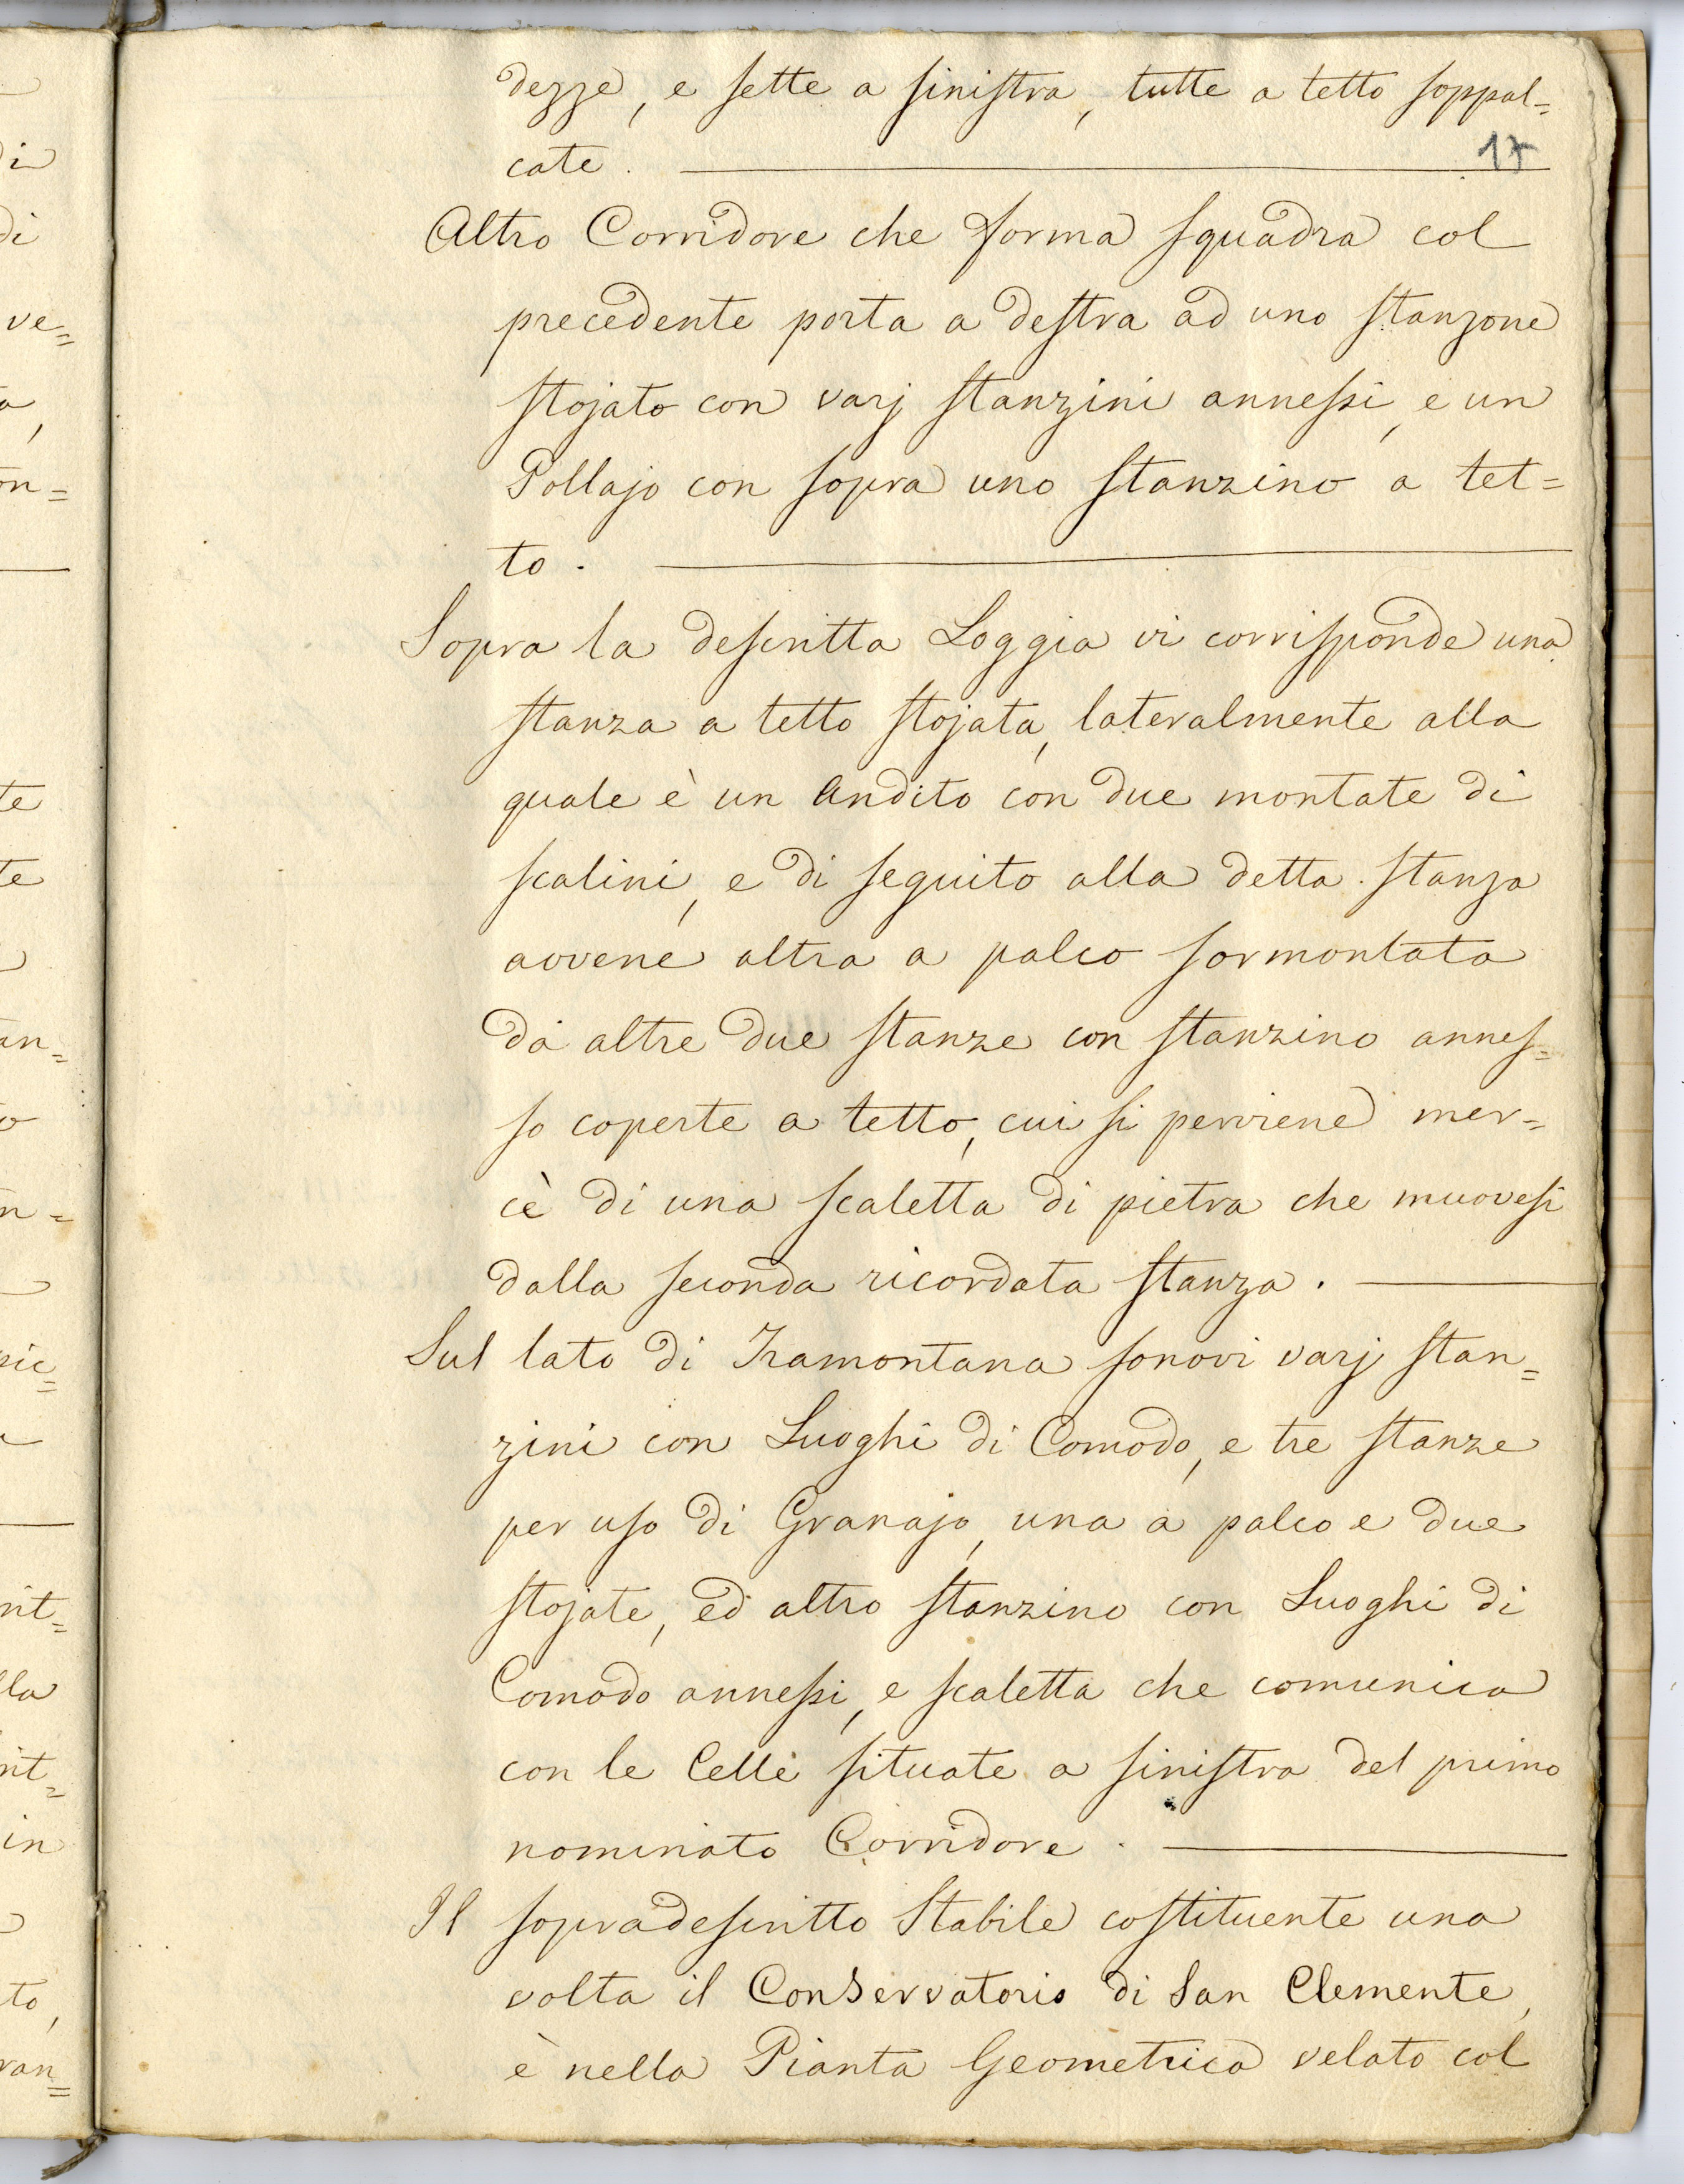 dezze, e sette a sinistra, tutte a tetto soppal=
cate.
17
Altro Corridore che forma squadra col
precedente porta a destra ad uno stanzone
stojato con varj stanzini annessi, e un
Pollajo con sopra uno stanzino a tet=
to.
Sopra la descritta Loggia vi corrisponde una
stanza a tetto stojata, lateralmente alla
quale è un Andito con due montate di
scalini, e di seguito alla detta stanza
avvene altra a palco sormontata
da altre due stanze con stanzino annes=
so coperte a tetto, cui si perviene mer=
cè di una scaletta di pietra che muovesi
dalla seconda ricordata stanza.
Sul lato di Tramontana sonovi varj stan=
zini con Luoghi di Comodo, e tre stanze
per uso di Granajo, una a palco e due
stojate, ed altro stanzino con Luoghi di
Comodo annessi, e scaletta che comunica
con le Celle situate a sinistra del primo
nominato Corridore.
Il sopradescritto Stabile costituente una
volta il Conservatorio di San Clemente,
è nella Pianta Geometrica velato col
di
di
ve=
a,
on=
te
te
an=
o
n=
pic=
rit=
lla
rit=
in
to,
ran=